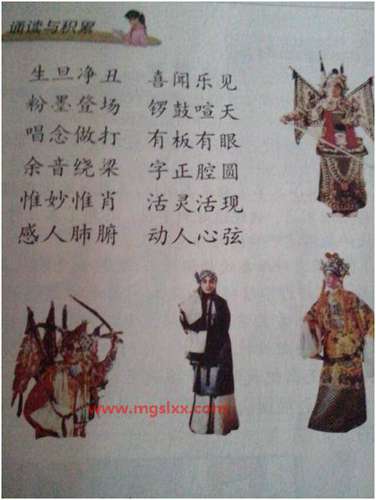 诵读与积累
生旦净丑 喜闻乐见
粉墨登场 锣鼓喧天
唱念做打 有板有眼
余音绕梁 字正腔圆
惟妙惟肖 活灵活现
感人肺腑 动人心弦
www.mgslxx.com